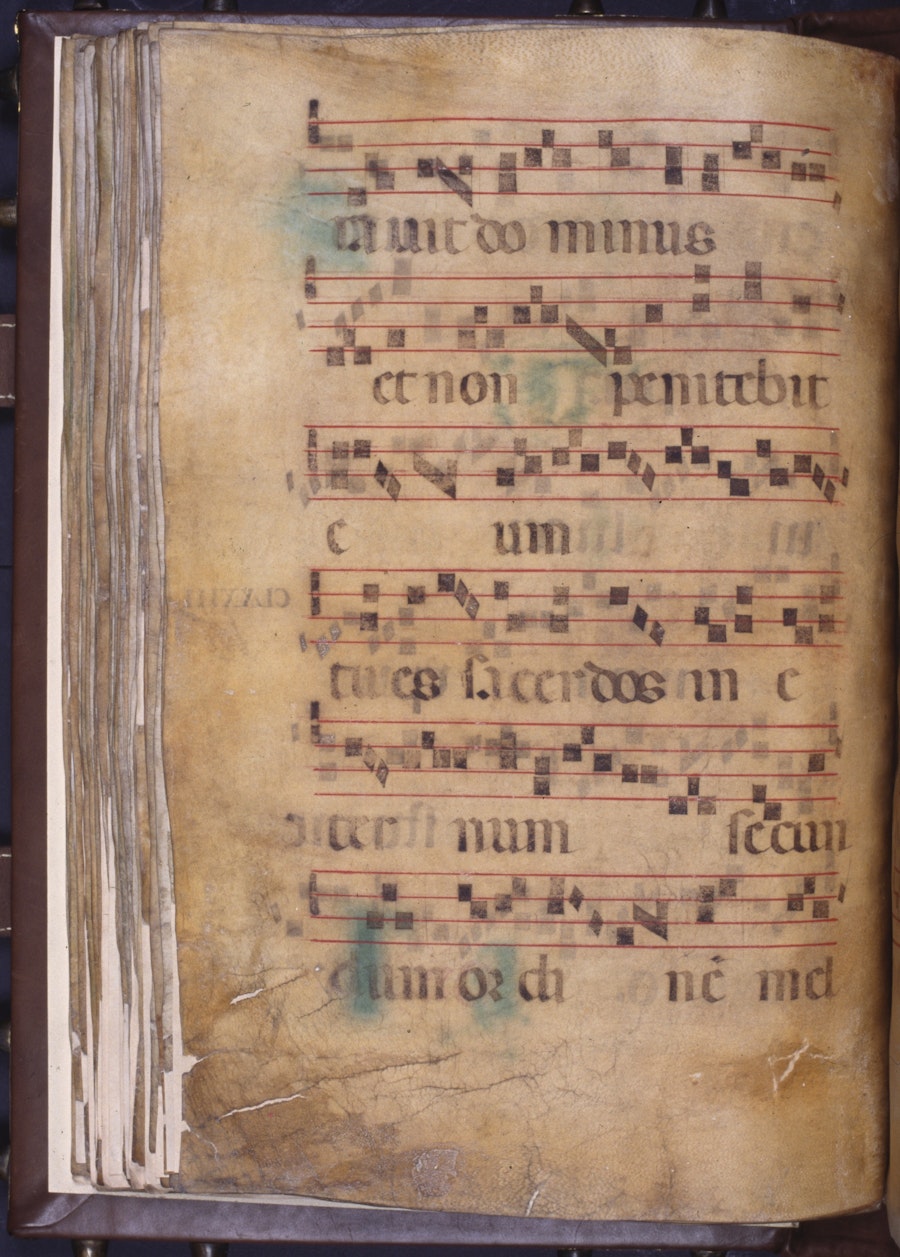 ra uit do minus
et non penitebit
e um
tu es sa cerdos in e
ter num secun
dum or di nē mel